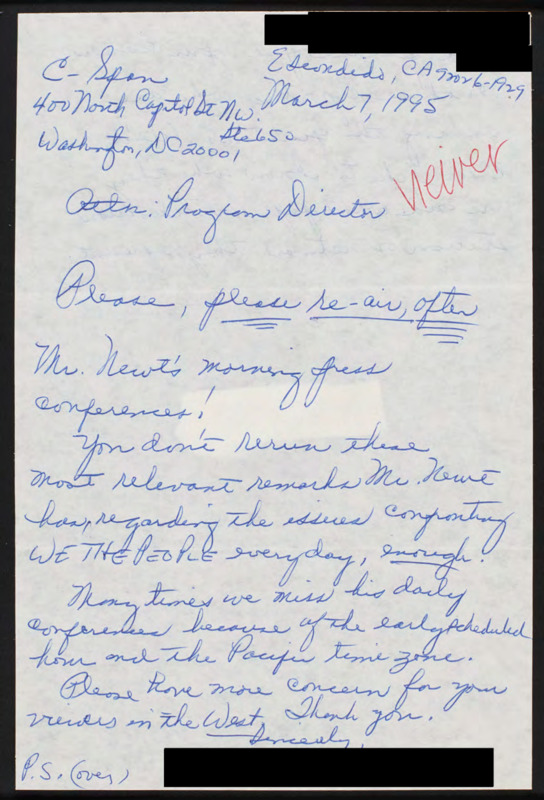 Escondido, CA 92026-A29
C-Span
March 7, 1995
400 North Capitol St NW.
Ste 650
Washington, DC 20001
Attn: Program Director
Please, please re-air, often
Mr. Newt's morning press
conferences!
You don't rerun these
most relevant remarks Mr. Newt
has, regarding the issues confronting
WE THE PEOPLE everyday, enough.
Many times we miss his daily
conferences because of the early scheduled
hour and the Pacific time zone.
Please have more concern for your
viewers in the West. Thank you.
Sincerely,
P.S. (over)